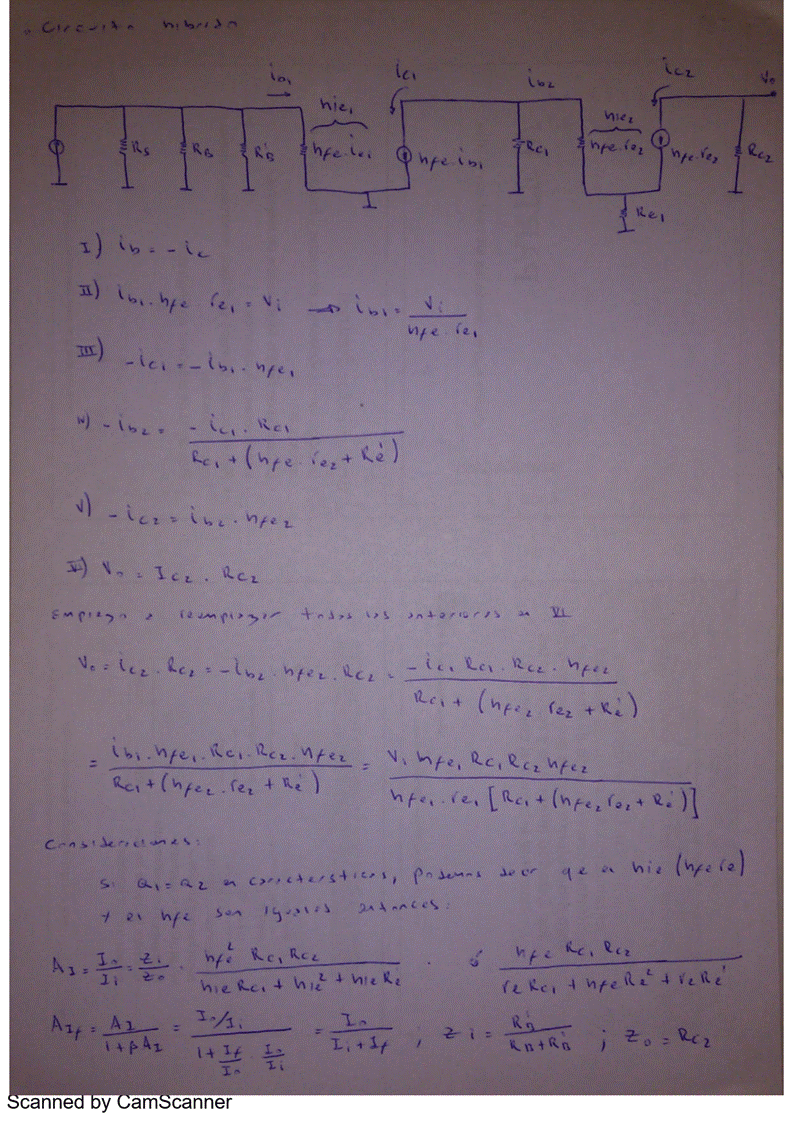 Circuito hibrido
ib1 ic1 ib2 ic2 Vo
hie1 hie2
Rs RB R'B hfe.ie1 hfe.ib1 Rc1 hfe.re2 hfe.re2 Rc2
Re1
I) ib = -ic
II) ib1 . hfe re1 = Vi → ib1 = Vi / hfe . re1
III) -ic1 = -ib1 . hfe1
IV) -ib2 = -ic1 . Rc1 / Rc1 + (hfe . re2 + Re')
V) -ic2 = ib2 . hfe2
Vo = Ic2 . Rc2
Empiezo a reemplazar todos los anteriores en VI
Vo = ic2 . Rc2 = -ib2 . hfe2 . Rc2 = -ic1 Rc1 . Rc2 . hfe2 / Rc1 + (hfe2 re2 + Re')
= ib1 . hfe1 . Rc1 . Rc2 . hfe2 / Rc1 + (hfe2 . re2 + Re') = Vi hfe1 Rc1 Rc2 hfe2 / hfe1 . re1 [Rc1 + (hfe2 re2 + Re')]
Consideraciones:
Si Q1 = Q2 en características, podemos decir que en hie (hfe re)
y el hfe son iguales entonces:
AI = Io/Ii = Zi/Zo . hfe² Rc1 Rc2 / hie Rc1 + hie² + hie Re' ó hfe Rc1 Rc2 / re Rc1 + hfe Re² + re Re'
AIf = AI / 1 + β AI = Io/Ii / 1 + If/Io . Io/Ii = Io / Ii + If ; Zi = R'B / RB + R'B ; Zo = Rc2
Scanned by CamScanner